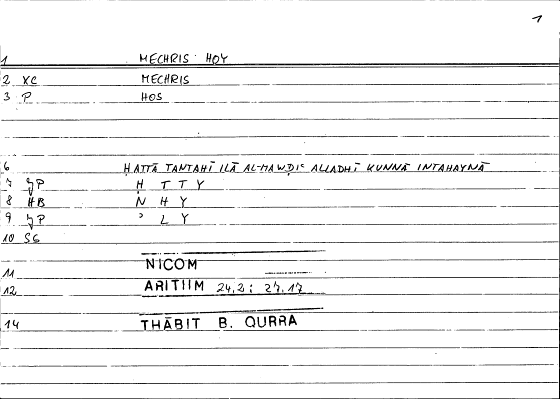 1
1 MECHRIS HOY
2 XC MECHRIS
3 P HOS
6 ḤATTĀ TANTAHĪ ILĀ AL-MAWḌIʿ ALLADHĪ KUNNĀ INTAHAYNĀ
7 ȜP Ḥ T T Y
8 HB N H Y
9 ȜP ʾ L Y
10 SG
11 NICOM
12 ARITIIM 24,2; 27,17
14 THĀBIT B. QURRA